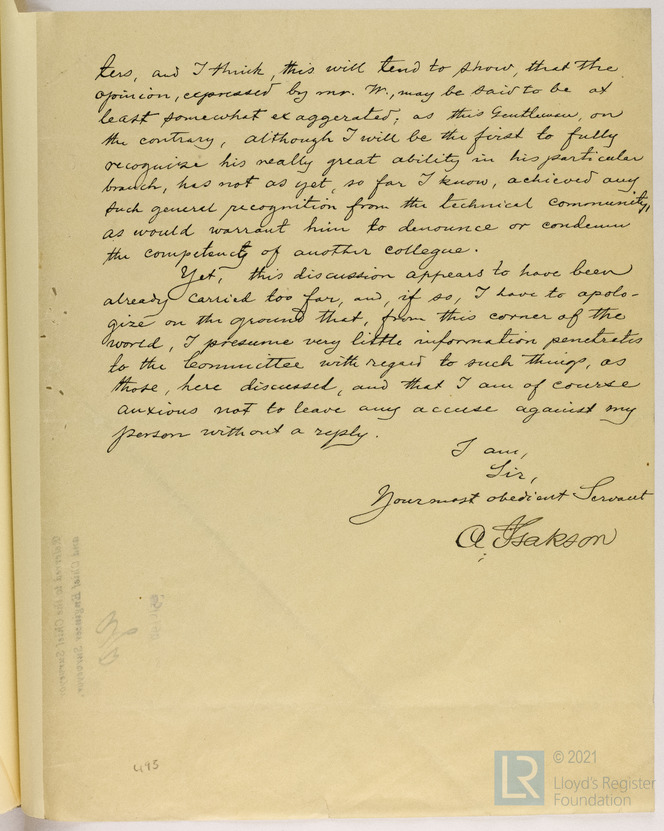 ters, and I think, this will tend to show, that the
opinion, expressed by mr. W., may be said to be at
least somewhat exaggerated; as this Gentleman, on
the contrary, although I will be the first to fully
recognize his really great ability in his particular
branch, has not as yet, so far I know, achieved any
such general recognition from the technical community,
as would warrant him to denounce or condemn
the competency of another collegue.
Yet, this discussion appears to have been
already carried too far, and, if so, I have to apolo-
gize on the ground that, from this corner of the
world, I presume very little information penetrates
to the Committee with regard to such things, as
those, here discussed, and that I am of course
anxious not to leave any accuse against my
person without a reply.
I am,
Sir,
Your most obedient Servant
A. Isakson
Referred to the Chief Surveyor
and Chief Engineer Surveyor.
495
LR
© 2021
Lloyd's Register
Foundation